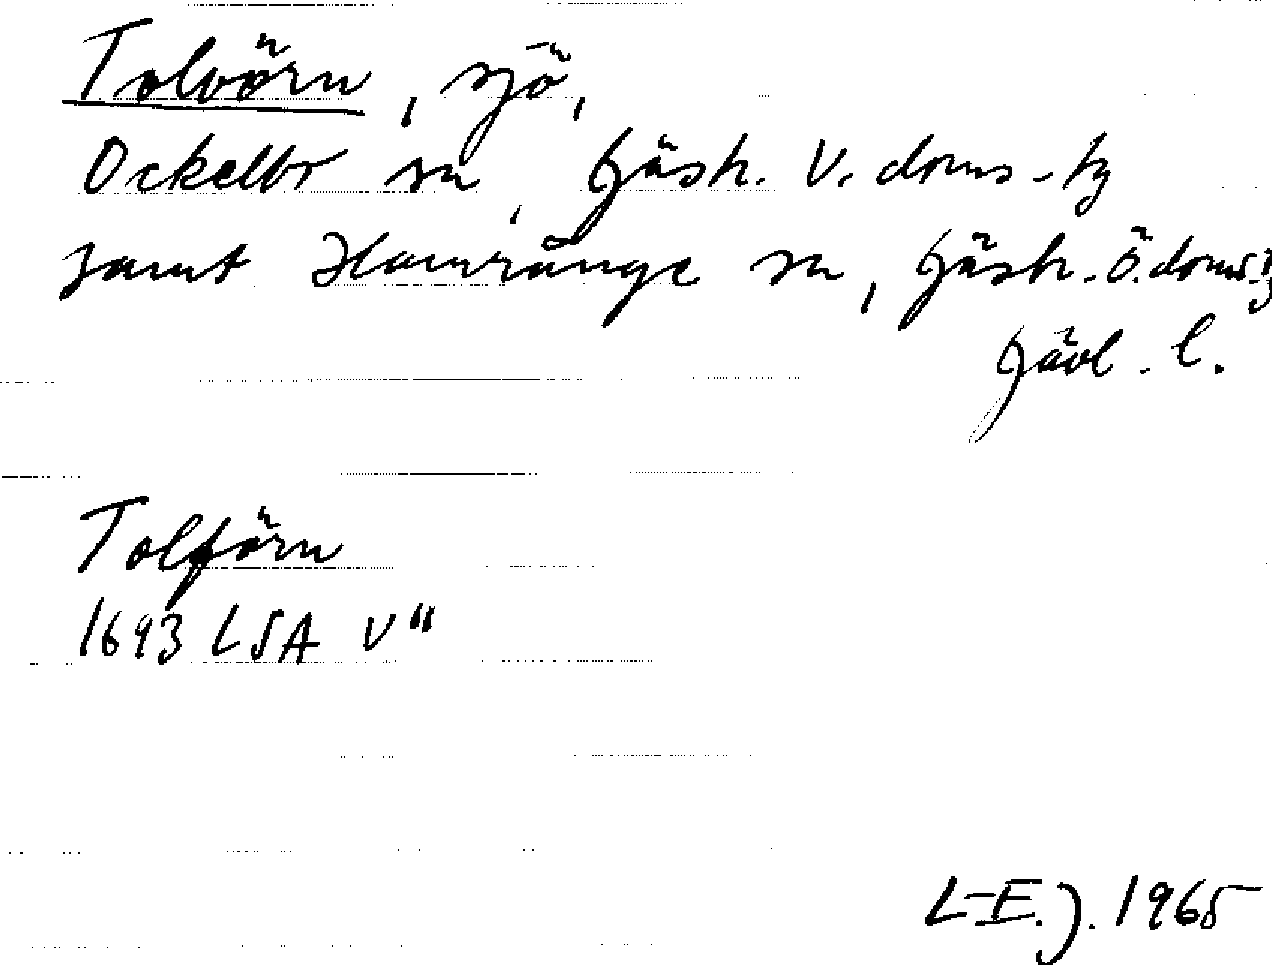 Tolvörn, sjö,
Ockelbo sn, Gästr. V. doms-hg
samt Hamrånge sn, Gästr. Ö. doms-hg
Gävl. l.
Tolförn
1693 LSA V"
L-E.J. 1965